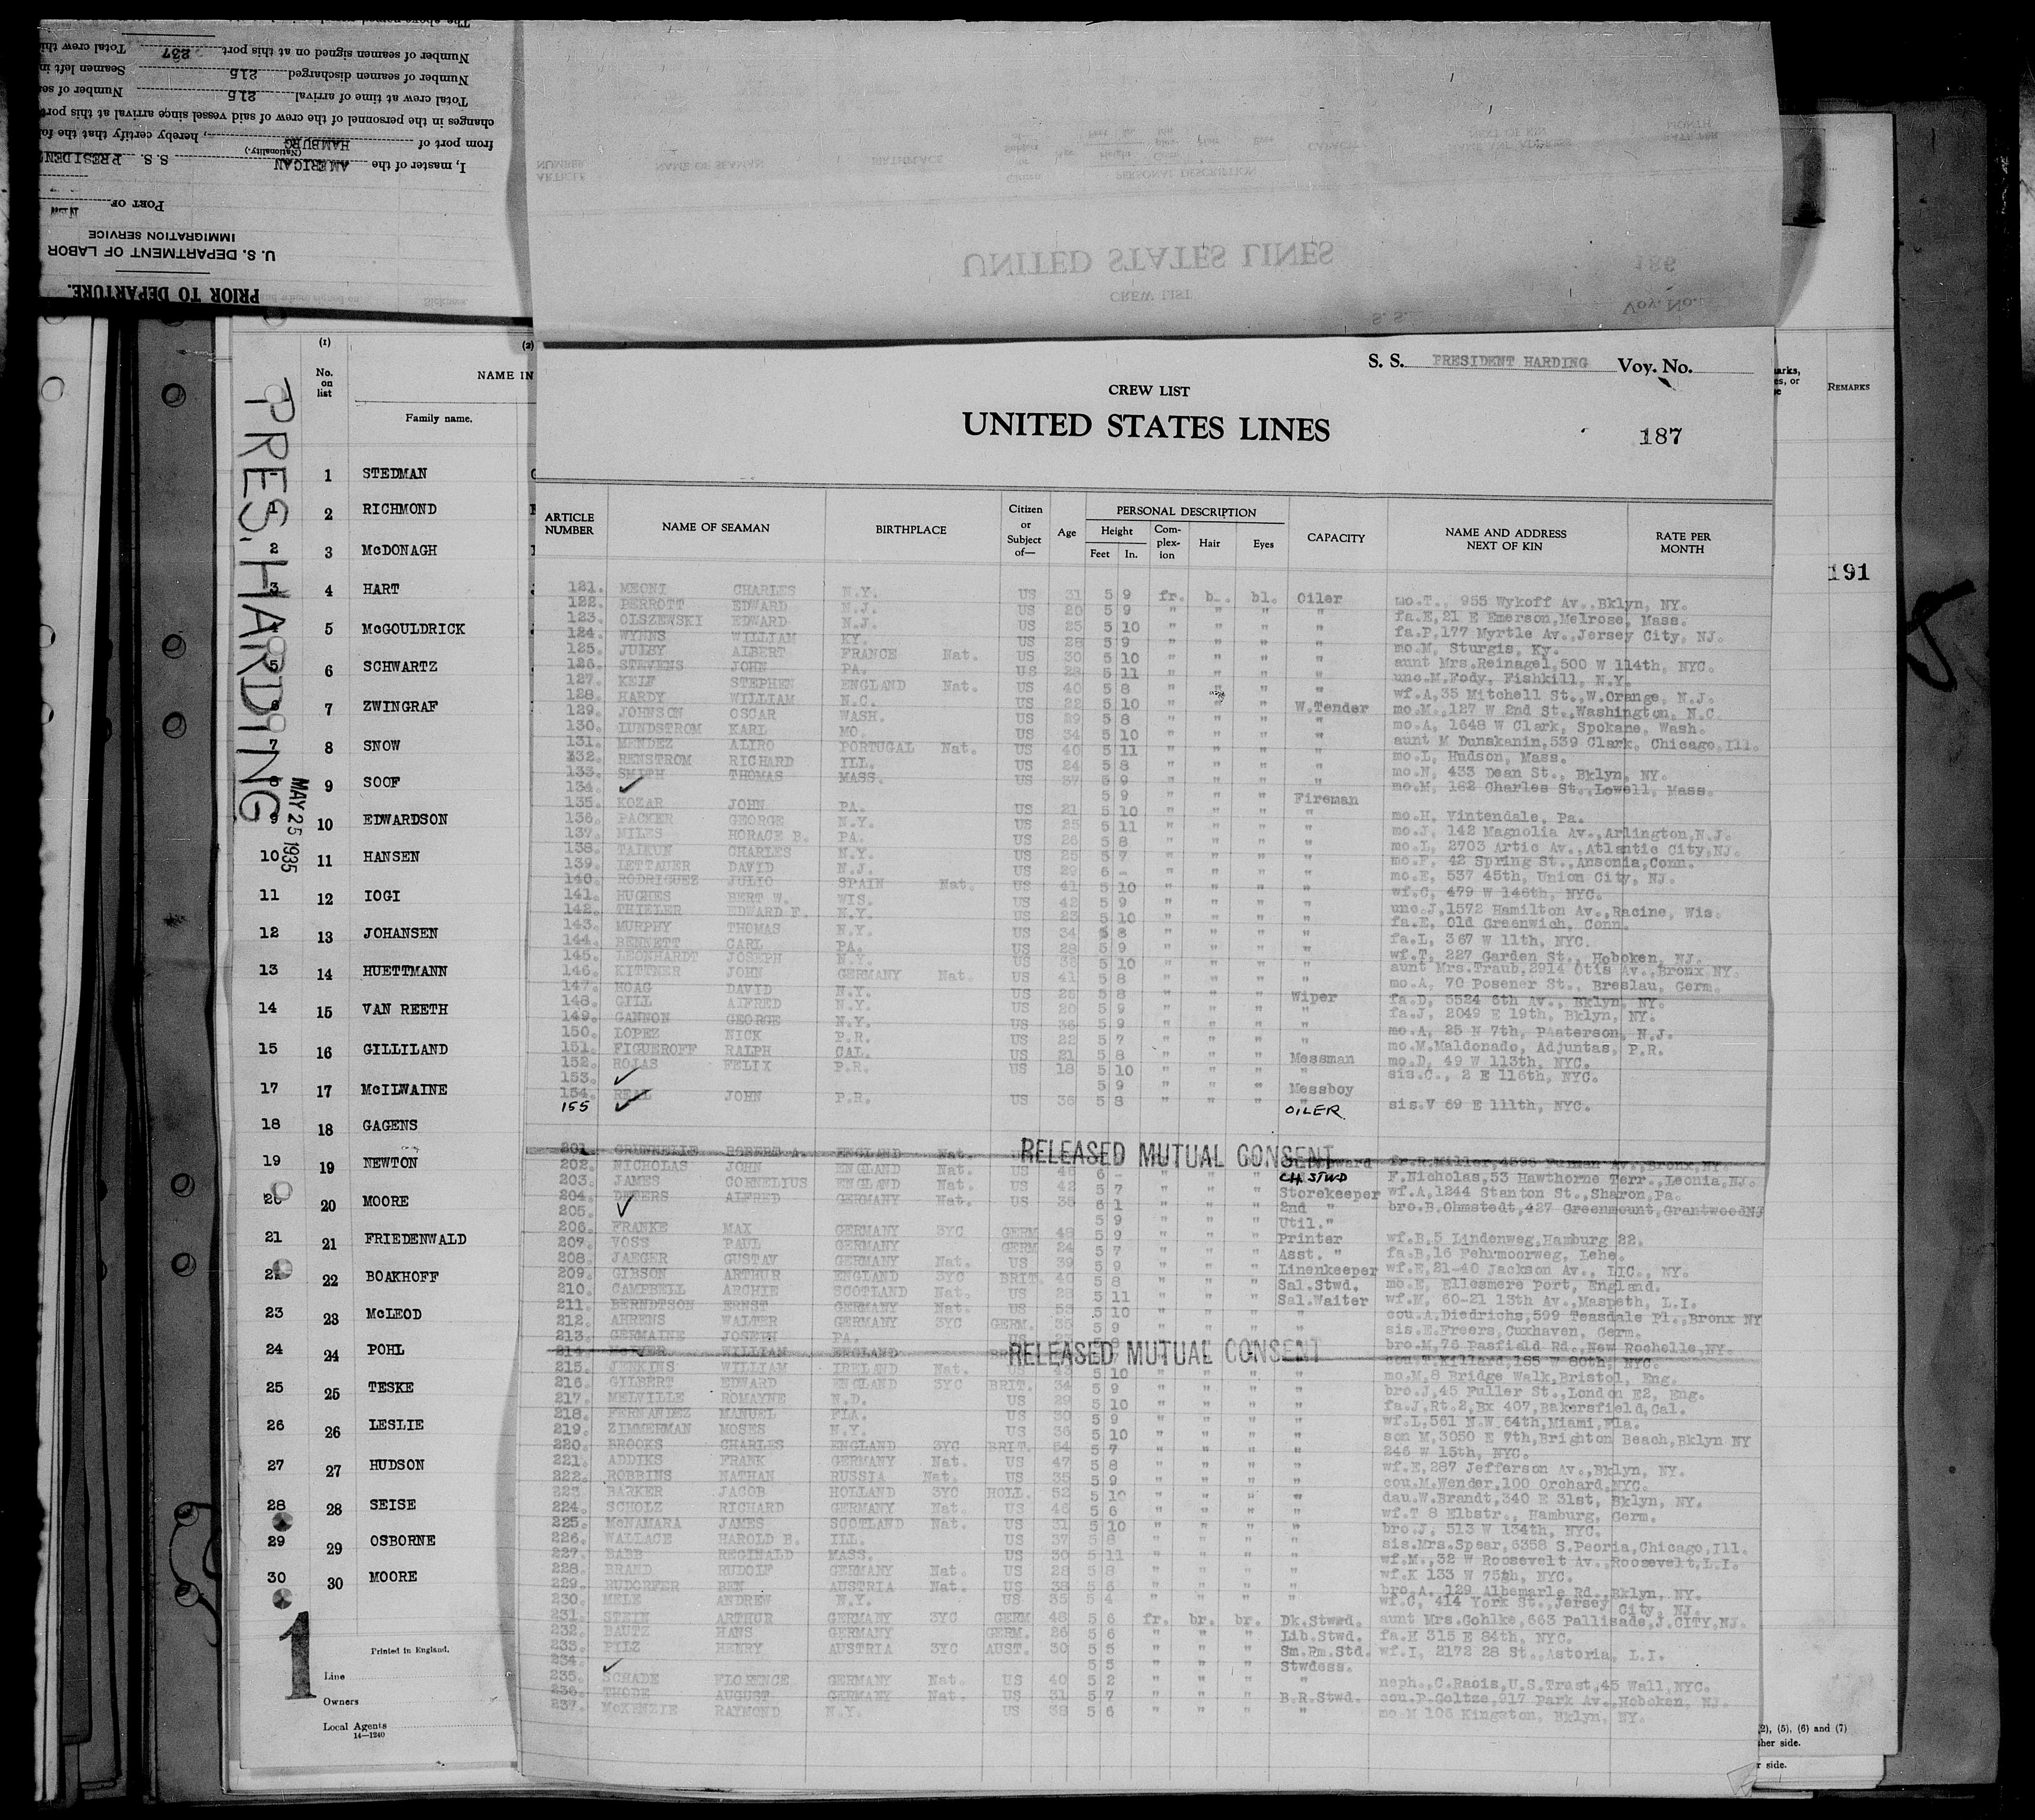 PRIOR TO DEPARTURE.
U. S. DEPARTMENT OF LABOR
IMMIGRATION SERVICE
PORT OF
I, master of the AMERICAN S. S. PRESIDEN
(Nationality.)
from port of HAMBURG, hereby certify that the fol
changes in the personnel of the crew of said vessel since arrival at this port
Total crew at time of arrival 215 Number of se
Number of seamen discharged 215 Seamen left in
Number of seamen signed on at this port 237 Total crew thi
UNITED STATES LINES
CREW LIST
186
S. S. Voy. No.
S. S. PRESIDENT HARDING Voy. No.
CREW LIST
UNITED STATES LINES
187
ARTICLE NUMBER NAME OF SEAMAN BIRTHPLACE Citizen or Subject of— Age PERSONAL DESCRIPTION CAPACITY NAME AND ADDRESS NEXT OF KIN RATE PER MONTH
Height Feet In. Complexion Hair Eyes
121. MEONI CHARLES N.Y. US 31 5 9 fr. b.. bl. Oiler mo.T., 955 Wykoff Av.,Bklyn, NY.
122. PERROTT EDWARD N.J. US 20 5 9 " " " " fa.E,21 E Emerson,Melrose, Mass.
123. OLSZEWSKI EDWARD N.J. US 25 5 10 " " " " fa.P,177 Myrtle Av.,Jersey City, NJ.
124. WYNNS WILLIAM KY. US 28 5 9 " " " " mo.M, Sturgis, Ky.
125. JULBY ALBERT FRANCE Nat. US 30 5 10 " " " " aunt Mrs.Reinagel,500 W 114th, NYC.
126. STEVENS JOHN PA. US 28 5 11 " " " " unc.M.Fody, Fishkill, N.Y.
127. KEIF STEPHEN ENGLAND Nat. US 40 5 8 " " " " wf.A,35 Mitchell St.,W.Orange, N.J.
128. HARDY WILLIAM N.C. US 22 5 10 " " " W.Tender mo.M.,127 W 2nd St.,Washington, N.C.
129. JOHNSON OSCAR WASH. US 29 5 8 " " " " mo.A, 1648 W Clark, Spokane, Wash.
130. LUNDSTROM KARL MO. US 34 5 10 " " " " aunt M Dunskanin,539 Clark, Chicago,Ill.
131. MENDEZ ALIRO PORTUGAL Nat. US 40 5 11 " " " " mo.L, Hudson, Mass.
132. RENSTROM RICHARD ILL. US 24 5 8 " " " " mo.N, 433 Dean St., Bklyn, NY.
133. SMITH THOMAS MASS. US 37 5 9 " " " " mo.M, 182 Charles St.,Lowell, Mass.
134. ✓ 5 9 " " " Fireman
135. KOZAR JOHN PA. US 21 5 10 " " " " mo.H, Vintendale, Pa.
136. PACKER GEORGE N.Y. US 25 5 11 " " " " mo.J, 142 Magnolia Av.,Arlington,N.J.
137. MILES HORACE B. PA. US 26 5 8 " " " " mo.L, 2703 Artic Av.,Atlantic City,NJ.
138. TAIKUN CHARLES N.Y. US 25 5 7 " " " " mo.F, 42 Spring St.,Ansonia,Conn.
139. LETTAUER DAVID N.J. US 29 6 - " " " " mo.E, 537 45th, Union City, NJ.
140. RODRIGUEZ JULIO SPAIN Nat. US 41 5 10 " " " " wf.C, 479 W 146th, NYC.
141. HUGHES BERT W. WIS. US 42 5 9 " " " " unc.J,1572 Hamilton Av.,Racine, Wis.
142. THIELER EDWARD F. N.Y. US 23 5 10 " " " " fa.E, Old Greenwich, Conn.
143. MURPHY THOMAS N.Y. US 34 5 8 " " " " fa.L, 367 W 11th, NYC.
144. BENNETT CARL PA. US 28 5 9 " " " " wf.T, 227 Garden St., Hoboken, NJ.
145. LEONHARDT JOSEPH N.Y. US 36 5 10 " " " " aunt Mrs.Traub,2914 Otis Av.,Bronx NY.
146. KITTNER JOHN GERMANY Nat. US 41 5 8 " " " " mo.A, 70 Posener St., Breslau, Germ.
147. HOAG DAVID N.Y. US 26 5 8 " " " Wiper fa.D, 5524 6th Av., Bklyn, NY.
148. GILL ALFRED N.Y. US 20 5 9 " " " " fa.J, 2049 E 19th, Bklyn, NY.
149. GANNON GEORGE N.Y. US 36 5 9 " " " " mo.A, 25 H 7th, PAaterson, N.J.
150. LOPEZ NICK P.R. US 22 5 7 " " " " mo.M.Maldonado, Adjuntas, P.R.
151. FIGUEROFF RALPH CAL. US 21 5 8 " " " Messman mo.D, 49 W 113th, NYC.
152. ROJAS FELIX P.R. US 18 5 10 " " " " sis.C., 2 E 116th, NYC.
153. ✓ 5 9 " " " Messboy
154. REAL JOHN P.R. US 36 5 8 " " " " sis.V 69 E 111th, NYC.
155 ✓ OILER
201. GRUNNELLE ROBERT A. ENGLAND Nat. RELEASED MUTUAL CONSENT fr.R.Miller,4396 Furman Av.,Bronx,NY.
202. NICHOLAS JOHN ENGLAND Nat. US 6 - " " " CH. STWD F.Nicholas,53 Hawthorne Terr.,Leonia,NJ.
203. JAMES CORNELIUS ENGLAND Nat. US 42 5 7 " " " Storekeeper wf.A,1244 Stanton St.,Sharon,Pa.
204. DETERS ALFRED GERMANY Nat. US 38 6 1 " " " 2nd " bro.B.Ohmstedt,427 Greenmount,GrantwoodNJ
205. ✓ 5 9 " " " Util."
206. FRANKE MAX GERMANY 3YC GERM 48 5 9 " " " Printer wf.B,5 Lindenweg,Hamburg 22.
207. VOSS PAUL GERMANY GERM 24 5 7 " " " Asst. " fa.B,16 Fehrmoorweg, Lehe.
208. JAEGER GUSTAV GERMANY Nat. US 39 5 9 " " " Linenkeeper wf.E,21-40 Jackson Av., LIC., NY.
209. GIBSON ARTHUR ENGLAND 3YC BRIT. 40 5 8 " " " Sal.Stwd. mo.E, Ellesmere Port, England.
210. CAMPBELL ARCHIE SCOTLAND Nat. US 28 5 11 " " " Sal.Waiter wf.M, 60-21 13th Av.,Maspeth, L.I.
211. BERNDTSON ERNST GERMANY Nat. US 53 5 10 " " " " cou.A.Diedrichs,599 Teasdale Pl.,Bronx NY
212. AHRENS WALTER GERMANY 3YC GERM. 35 5 9 " " " " sis.E.Freers,Cuxhaven, Germ.
213. GERMAINE JOSEPH PA. US bro.M,76 Pasfield Rd.,New Rochelle,NY.
214. WILLIAM ENGLAND RELEASED MUTUAL CONSENT cou.T.Killard,165 W 80th, NYC.
215. JENKINS WILLIAM IRELAND Nat. US 5 10 " " " " mo.M,8 Bridge Walk,Bristol, Eng.
216. GILBERT EDWARD ENGLAND 3YC BRIT. 34 5 9 " " " " bro.J,45 Fuller St.,London E2, Eng.
217. MELVILLE ROMAYNE N.D. US 29 5 10 " " " " fa.J,Rt.2,Bx 407,Bakersfield,Cal.
218. FERNANDEZ MANUEL FLA. US 30 5 9 " " " " wf.L,561 N.W.64th,Miami,Fla.
219. ZIMMERMAN MOSES N.Y. US 36 5 10 " " " " son M,3050 E 7th,Brighton Beach,Bklyn NY
220. BROOKS CHARLES ENGLAND 3YC BRIT. 54 5 7 " " " " 246 W 15th, NYC.
221. ADDIKS FRANK GERMANY Nat. US 47 5 8 " " " " wf.E,287 Jefferson Av.,Bklyn, NY.
222. ROBBINS NATHAN RUSSIA Nat. US 35 5 9 " " " " cou.M.Wender,100 Orchard,NYC.
223. BARKER JACOB HOLLAND 3YC HOLL. 52 5 10 " " " " dau.W.Brandt,340 E 31st, Bklyn, NY.
224. SCHOLZ RICHARD GERMANY Nat. US 46 5 6 " " " " wf.T 8 Elbstr., Hamburg, Germ.
225. McNAMARA JAMES SCOTLAND Nat. US 31 5 10 " " " " bro.J, 513 W 134th, NYC.
226. WALLACE HAROLD B. ILL. US 37 5 8 " " " " sis.Mrs.Spear,6358 S.Peoria,Chicago,Ill.
227. BABB REGINALD MASS. US 30 5 11 " " " " wf.M.,32 W Roosevelt Av.,Roosevelt,L.I.
228. BRAND RUDOLF GERMANY Nat. US 28 5 8 " " " " wf.K 133 W 75th, NYC.
229. RUDORFER BEN AUSTRIA Nat. US 38 5 6 " " " " bro.A. 129 Albemarle Rd.,Bklyn, NY.
230. MELE ANDREW N.Y. US 35 5 4 " " " " wf.C, 414 York St.,Jersey City, NJ.
231. STEIN ARTHUR GERMANY 3YC GERM 48 5 6 fr. br. br. Dk.Stwwd. aunt Mrs.Gohlke,663 Pallisade,J.CITY,NJ.
232. BAUTZ HANS GERMANY GERM. 26 5 6 " " " Lib.Stwd. fa.H 315 E 84th, NYC.
233. PILZ HENRY AUSTRIA 3YC AUST. 30 5 5 " " " Sm.Rm.Std. wf.I, 2172 28 St.,Astoria, L.I.
234. ✓ 5 5 " " " Stwdess.
235. SCHADE FLORENCE GERMANY Nat. US 40 5 2 " " " " neph.,C.Raois,U.S.Trust,45 Wall,NYC.
236. THODE AUGUST GERMANY Nat. US 31 5 7 " " " B.R.Stwd. cou.P.Goltze,917 Park Av.,Hoboken, NJ.
237. McKENZIE RAYMOND N.Y. US 38 5 6 " " " " mo.M 106 Kingston, Bklyn, NY.
PRES. HARDING
MAY 25 1935
(1) (2)
No. on list NAME IN
Family name.
1 STEDMAN
1 2 RICHMOND
2 3 McDONAGH
3 4 HART
4 5 McGOULDRICK
5 6 SCHWARTZ
6 7 ZWINGRAF
7 8 SNOW
8 9 SOOF
9 10 EDWARDSON
10 11 HANSEN
11 12 IOGI
12 13 JOHANSEN
13 14 HUETTMANN
14 15 VAN REETH
15 16 GILLILAND
17 17 McILWAINE
18 18 GAGENS
19 19 NEWTON
20 20 MOORE
21 21 FRIEDENWALD
22 22 BOAKHOFF
23 23 McLEOD
24 24 POHL
25 25 TESKE
26 26 LESLIE
27 27 HUDSON
28 28 SEISE
29 29 OSBORNE
30 30 MOORE
1
Printed in England.
Line
Owners
Local Agents
14—1240
REMARKS
191
(2), (5), (6) and (7)
her side.
r side.